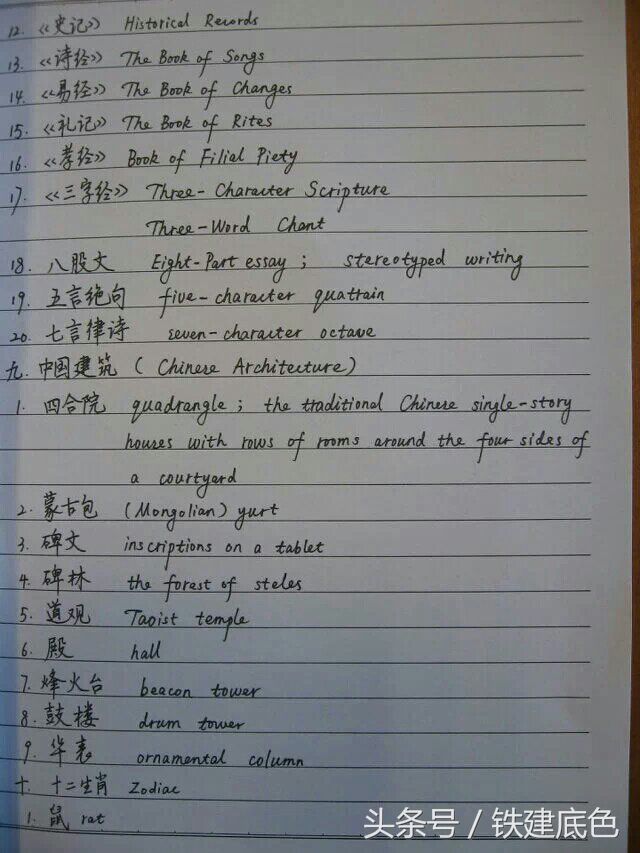 12. 《史记》 Historical Records
13. 《诗经》 The Book of Songs
14. 《易经》 The Book of Changes
15. 《礼记》 The Book of Rites
16. 《孝经》 Book of Filial Piety
17. 《三字经》 Three-Character Scripture
Three-Word Chant
18. 八股文 Eight-Part essay; stereotyped writing
19. 五言绝句 five-character quatrain
20. 七言律诗 seven-character octave
九. 中国建筑 (Chinese Architecture)
1. 四合院 quadrangle; the traditional Chinese single-story
houses with rows of rooms around the four sides of
a courtyard
2. 蒙古包 (Mongolian) yurt
3. 碑文 inscriptions on a tablet
4. 碑林 the forest of steles
5. 道观 Taoist temple
6. 殿 hall
7. 烽火台 beacon tower
8. 鼓楼 drum tower
9. 华表 ornamental column
十. 十二生肖 Zodiac
1. 鼠 rat
头条号 / 铁建底色